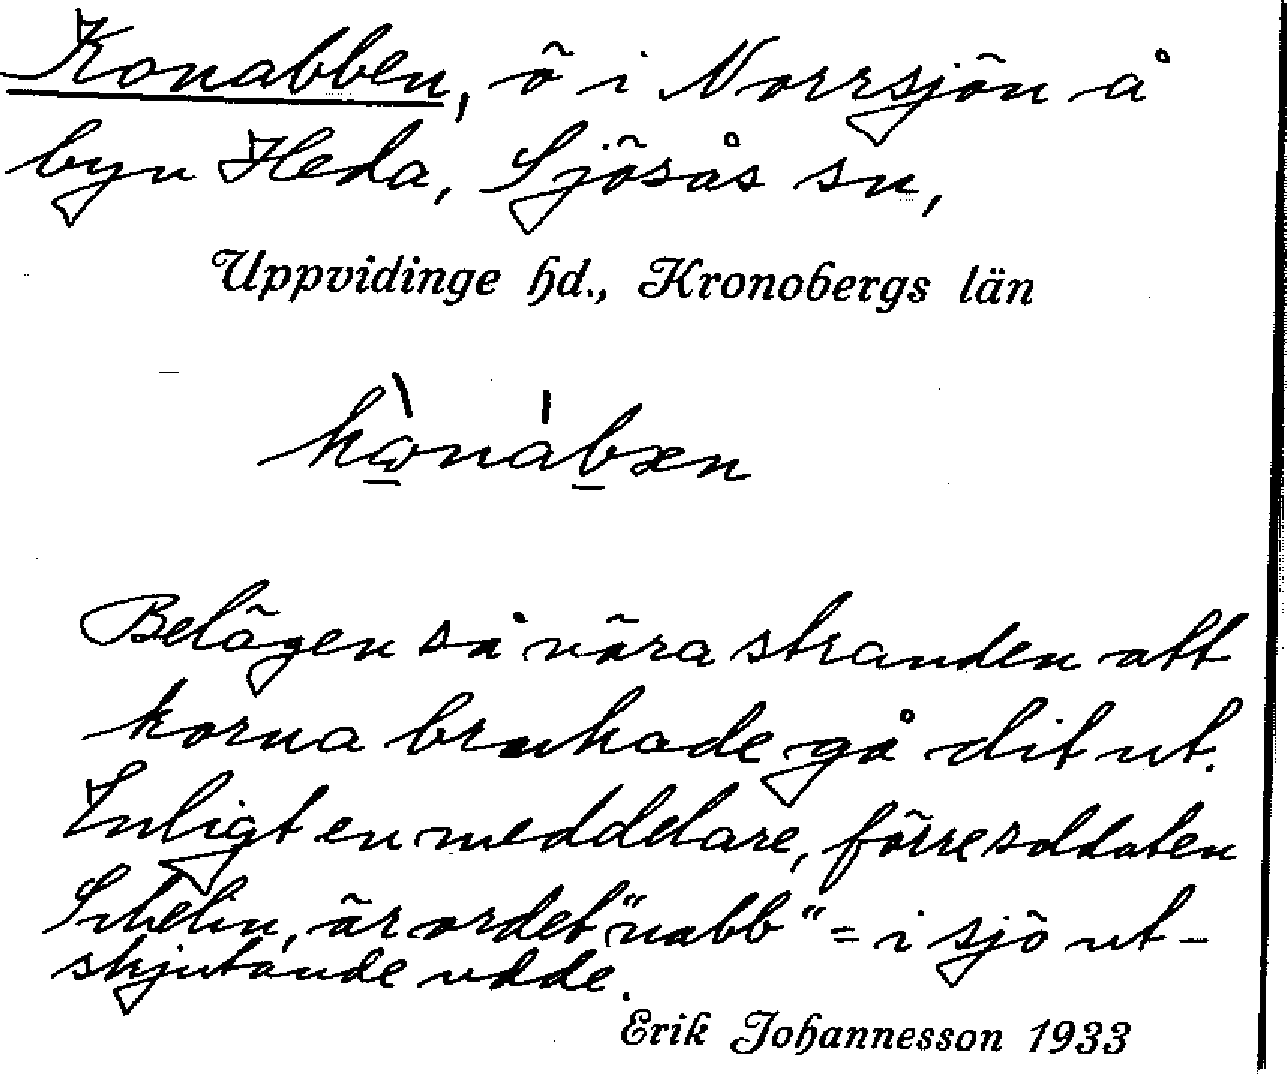 Konabben, ö i Norrsjön å
byn Heda, Sjösås sn,
Uppvidinge hd., Kronobergs län
Belägen så nära stranden att
korna brukade gå dit ut.
Enligt en meddelare, förre soldaten
Sibelin, är ordet "nabb" = i sjö ut-
skjutande udde.
Erik Johannesson 1933